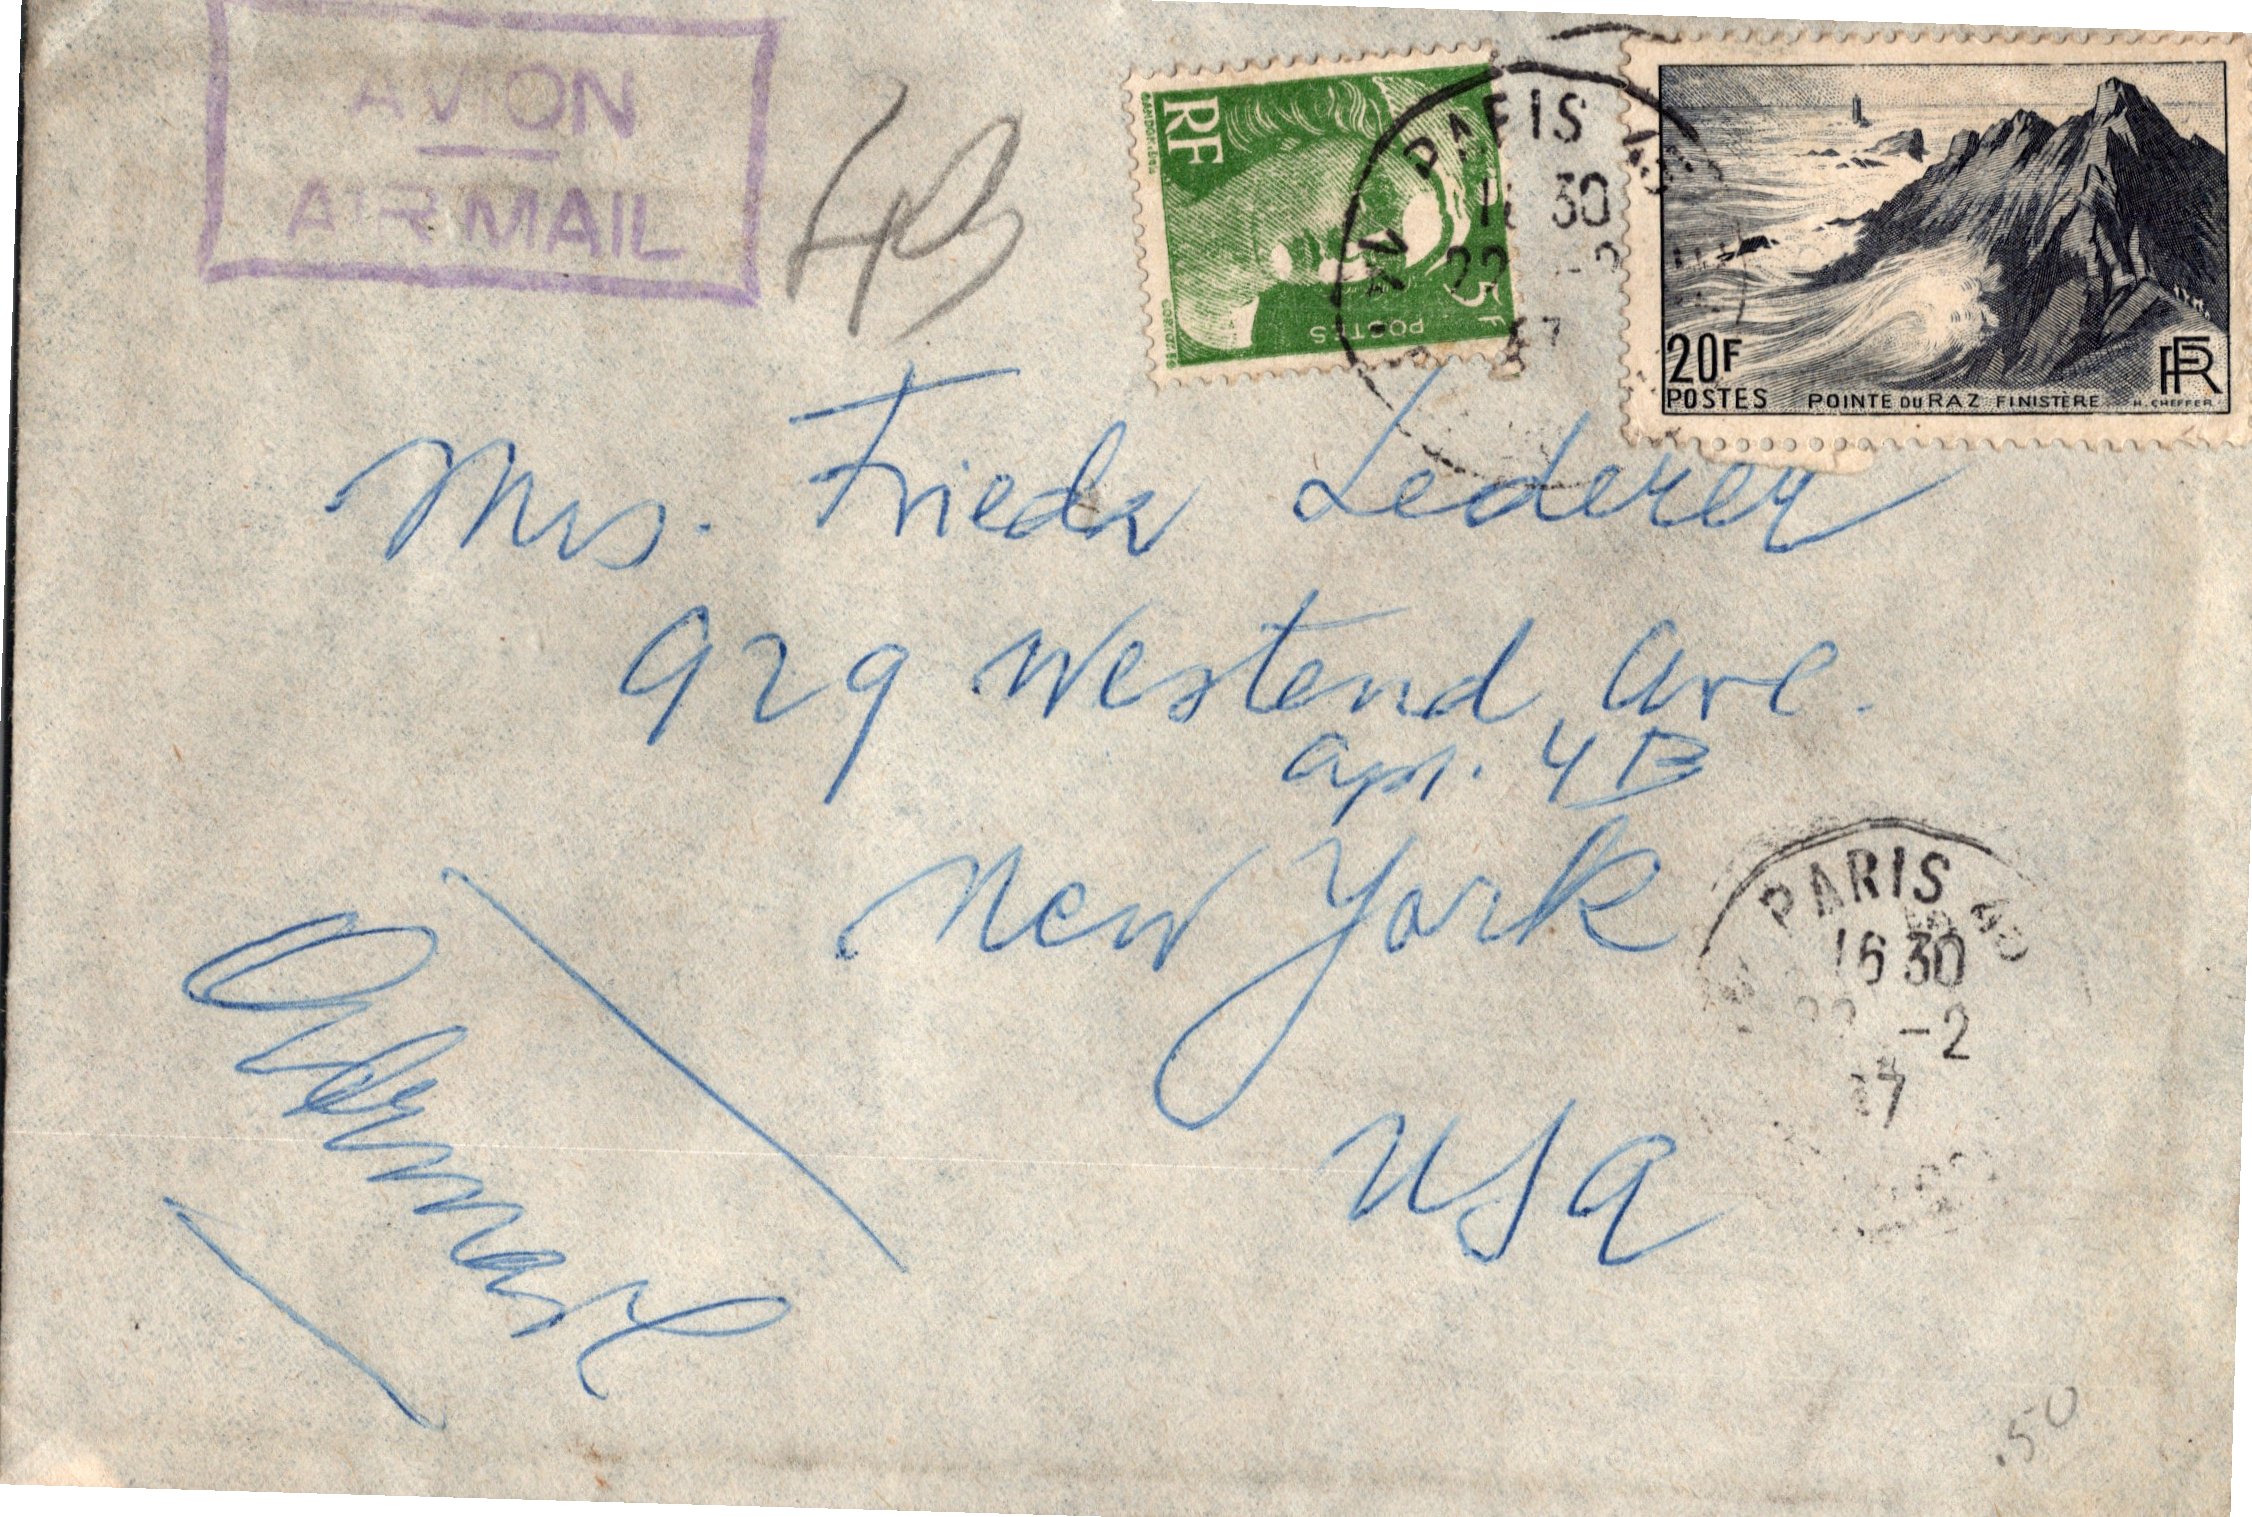 AVION
AIR MAIL
4B
RF
5F
POSTES
PARIS
30
22 -2
47
20F
POSTES POINTE DU RAZ FINISTERE
RF
H. CHEFFER
Mrs. Frieda Lederer
929 Westend Ave.
apt. 4B
New York
USA
PARIS
16 30
22 -2
47
.50